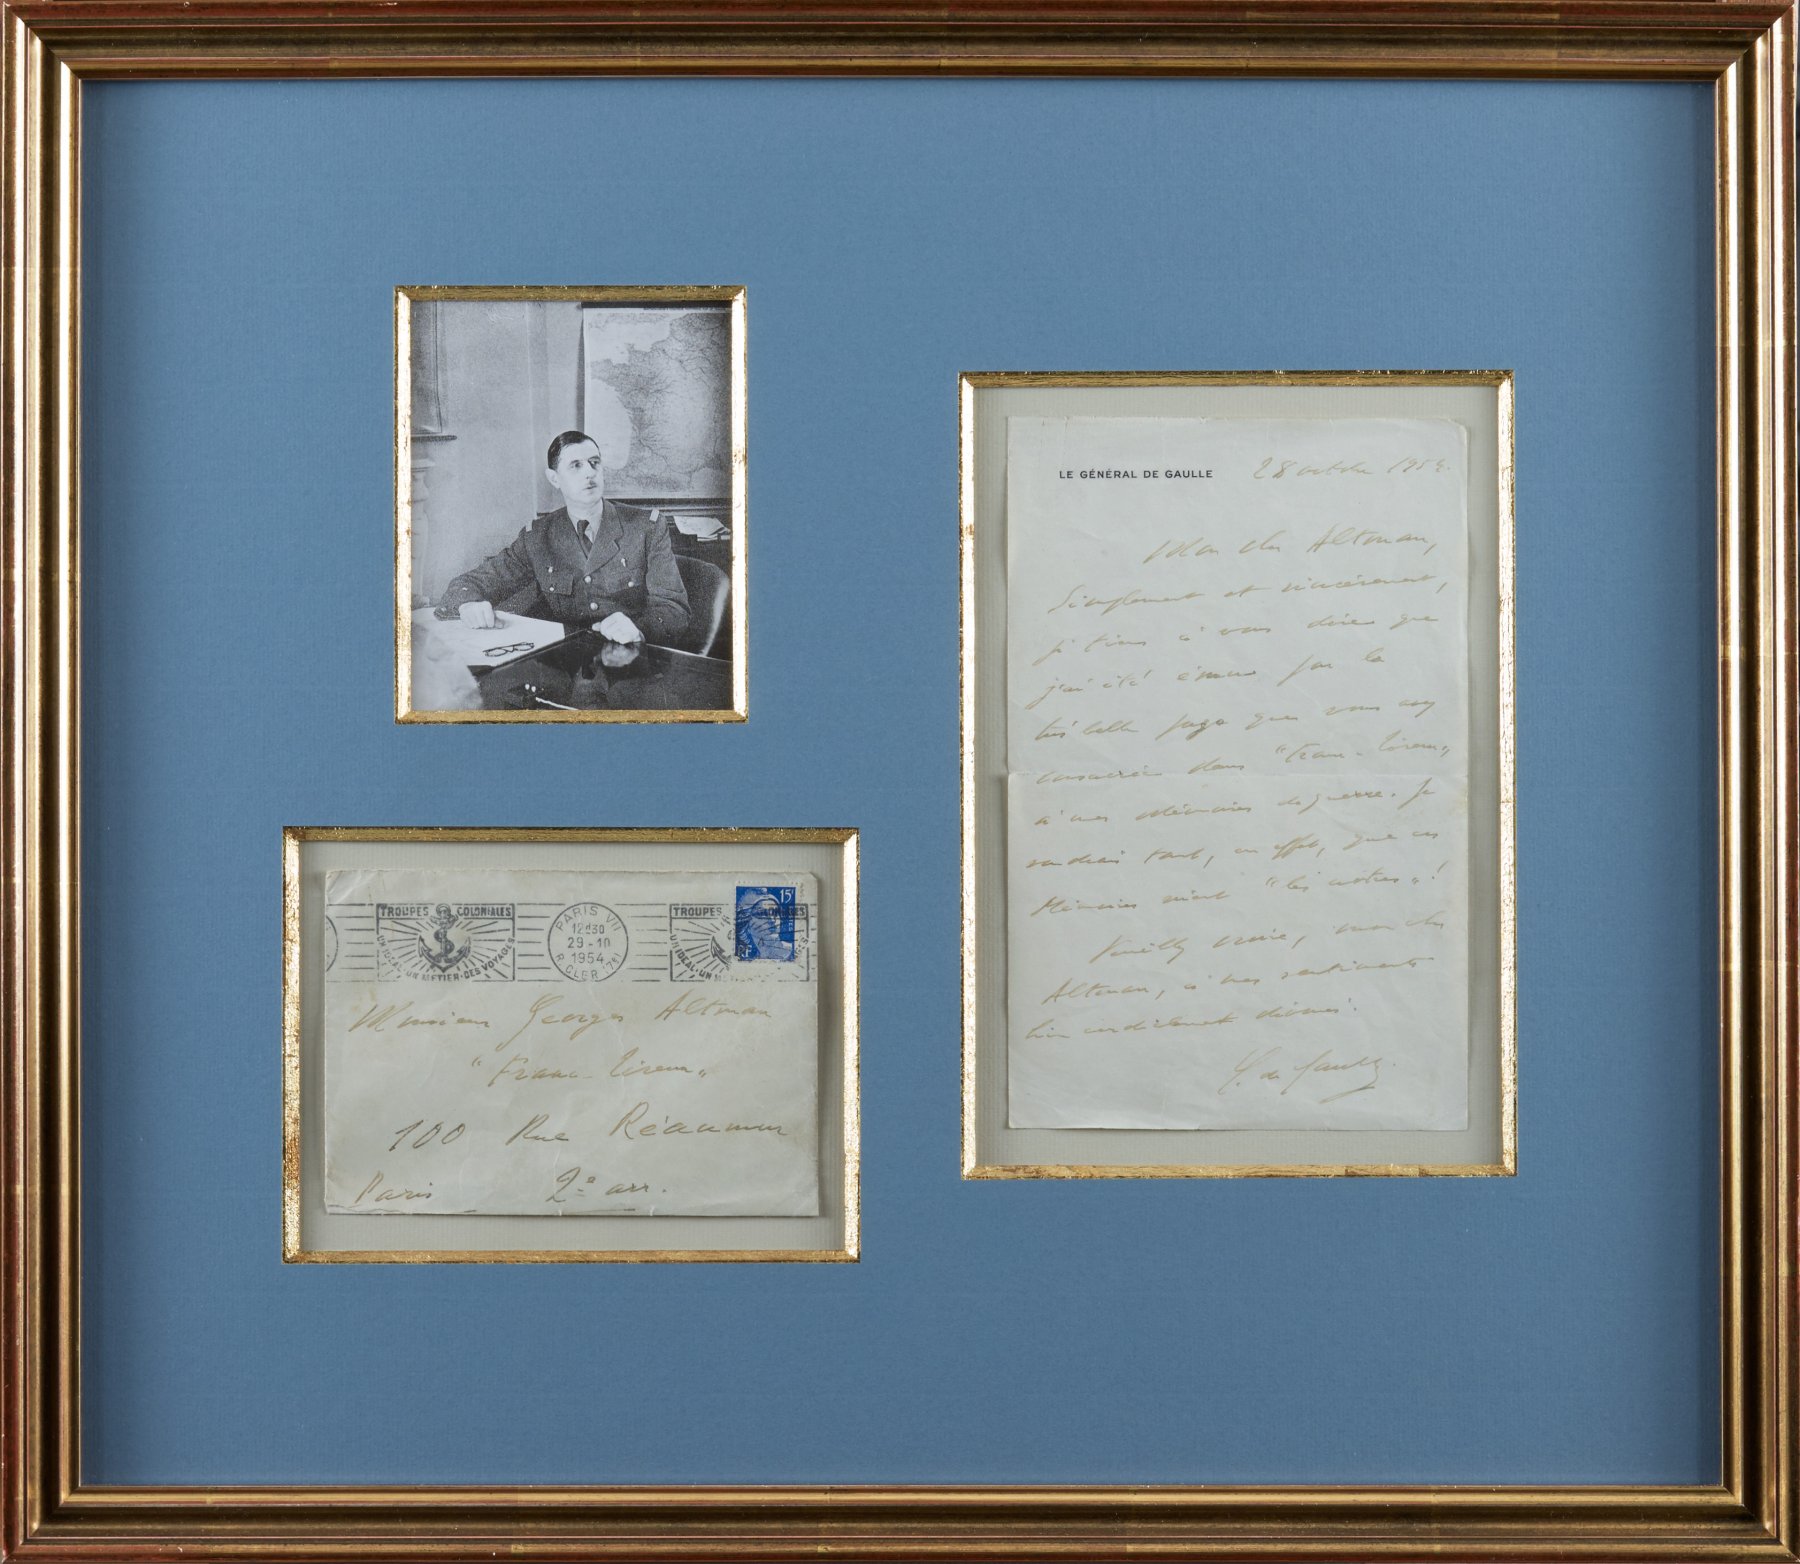 TROUPES COLONIALES
UN IDÉAL·UN MÉTIER·DES VOYAGES
PARIS VII
12H30
29-10
1954
R. CLER (7e)
TROUPES COLONIALES
UN IDÉAL·UN
15F
RF
Monsieur Georges Altman
"Franc-Tireur"
100 Rue Réaumur
Paris 2e arr.
LE GÉNÉRAL DE GAULLE 28 octobre 1954.
Mon cher Altman,
Simplement et sincèrement,
je tiens à vous dire que
j'ai été ému par la
très belle page que vous avez
consacrée dans "Franc-Tireur"
à mes Mémoires de guerre. Je
voudrais tant, en effet, que ces
Mémoires soient "les nôtres"!
Veuillez croire, mon cher
Altman, à mes sentiments
bien cordialement dévoués.
C. de Gaulle